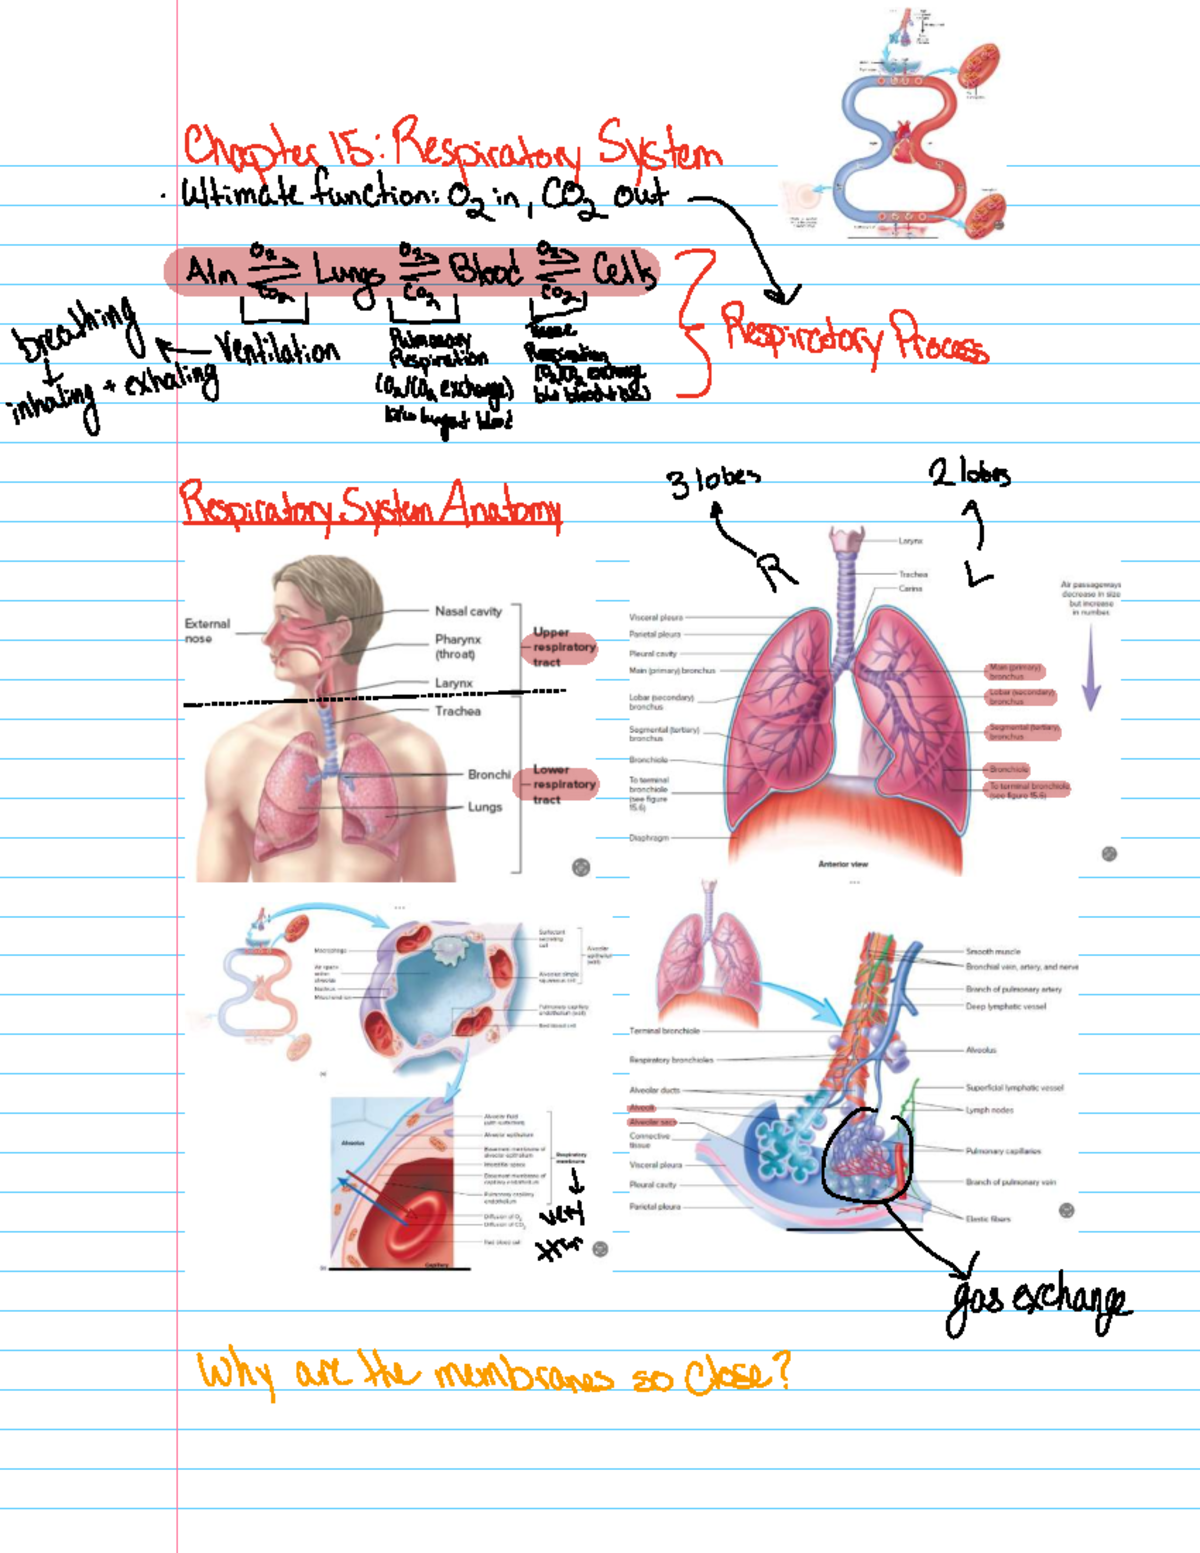 Chapter 15: Respiratory System
· Ultimate function: O2 in, CO2 out
O2 O2 O2
Lungs Blood Cells
CO2 CO2 CO2
Respiratory Process
breathing
Ventilation
inhaling + exhaling
Pulmonary
Respiration
(O2/CO2 exchange)
Tissue
Respiration
O2/CO2 exchange
Respiratory System Anatomy
3 lobes
2 lobes
R
L
External
nose
Nasal cavity
Pharynx
(throat)
Larynx
Upper
respiratory
tract
Trachea
Bronchi
Lungs
Lower
respiratory
tract
Larynx
Trachea
Carina
Visceral pleura
Parietal pleura
Pleural cavity
Main (primary) bronchus
Lobar (secondary)
bronchus
Segmental (tertiary)
bronchus
Bronchiole
To terminal
bronchiole
(see figure
15.6)
Diaphragm
Main (primary)
bronchus
Lobar (secondary)
bronchus
Segmental (tertiary)
bronchus
Bronchiole
To terminal bronchiole
(see figure 15.6)
Air passageways
decrease in size
but increase
in number
Anterior view
Macrophage
Air space
within
alveolus
Nucleus
Mitochondrion
Surfactant
secreting
cell
Alveolar simple
squamous cell
Alveolar
epithelium
(wall)
Pulmonary capillary
endothelium (wall)
Red blood cell
Alveolus
Alveolar fluid
(with surfactant)
Alveolar epithelium
Basement membrane of
alveolar epithelium
Interstitial space
Basement membrane of
capillary endothelium
Pulmonary capillary
endothelium
Respiratory
membrane
Diffusion of O2
Diffusion of CO2
Red blood cell
Capillary
Terminal bronchiole
Respiratory bronchioles
Alveolar ducts
Alveoli
Alveolar sacs
Connective
tissue
Visceral pleura
Pleural cavity
Parietal pleura
Smooth muscle
Bronchial vein, artery, and nerve
Branch of pulmonary artery
Deep lymphatic vessel
Alveolus
Superficial lymphatic vessel
Lymph nodes
Pulmonary capillaries
Branch of pulmonary vein
Elastic fibers
gas exchange
Why are the membranes so close?